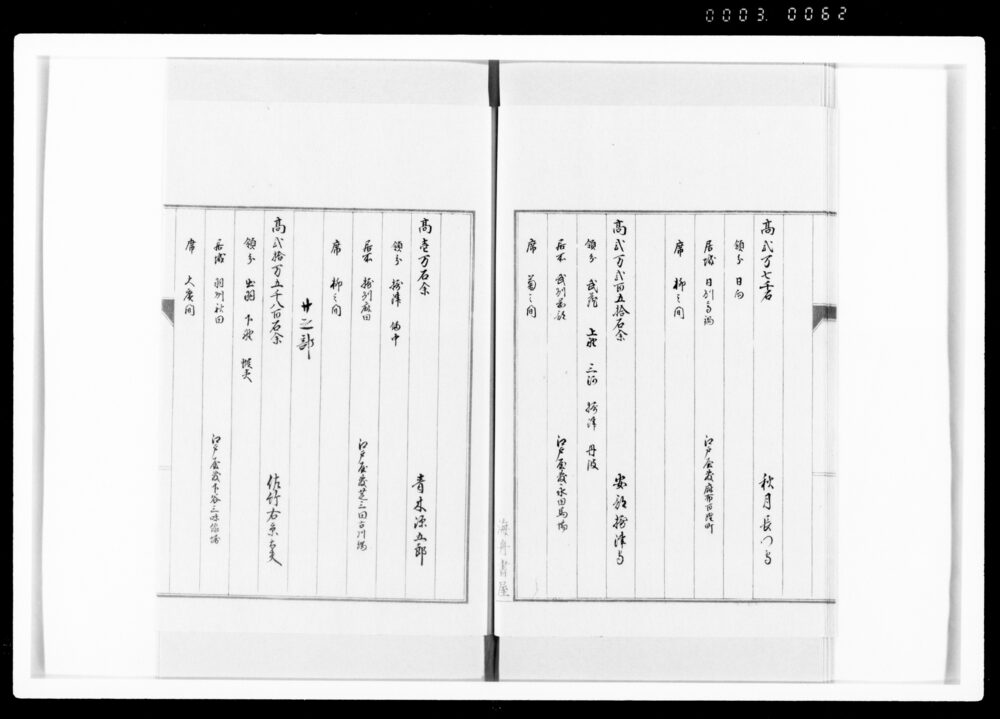 0003. 0062
高弐万七千石 秋月長門守
領分 日向
居城 日州高鍋 江戸屋敷麻布百姓町
席 柳之間
高弐万弐百五拾石余 安部摂津守
領分 武蔵 上野 三河 摂津 丹波
居所 武州岡部 江戸屋敷永田馬場
席 菊之間
海舟書屋
高壱万石余 青木源五郎
領分 摂津 備中
居所 摂州麻田 江戸屋敷芝三田古川端
席 柳之間
サ之部
高弐拾万五千八百石余 佐竹右京大夫
領分 出羽 下野 蝦夷
居城 羽州秋田 江戸屋敷下谷三味線堀
席 大廣間